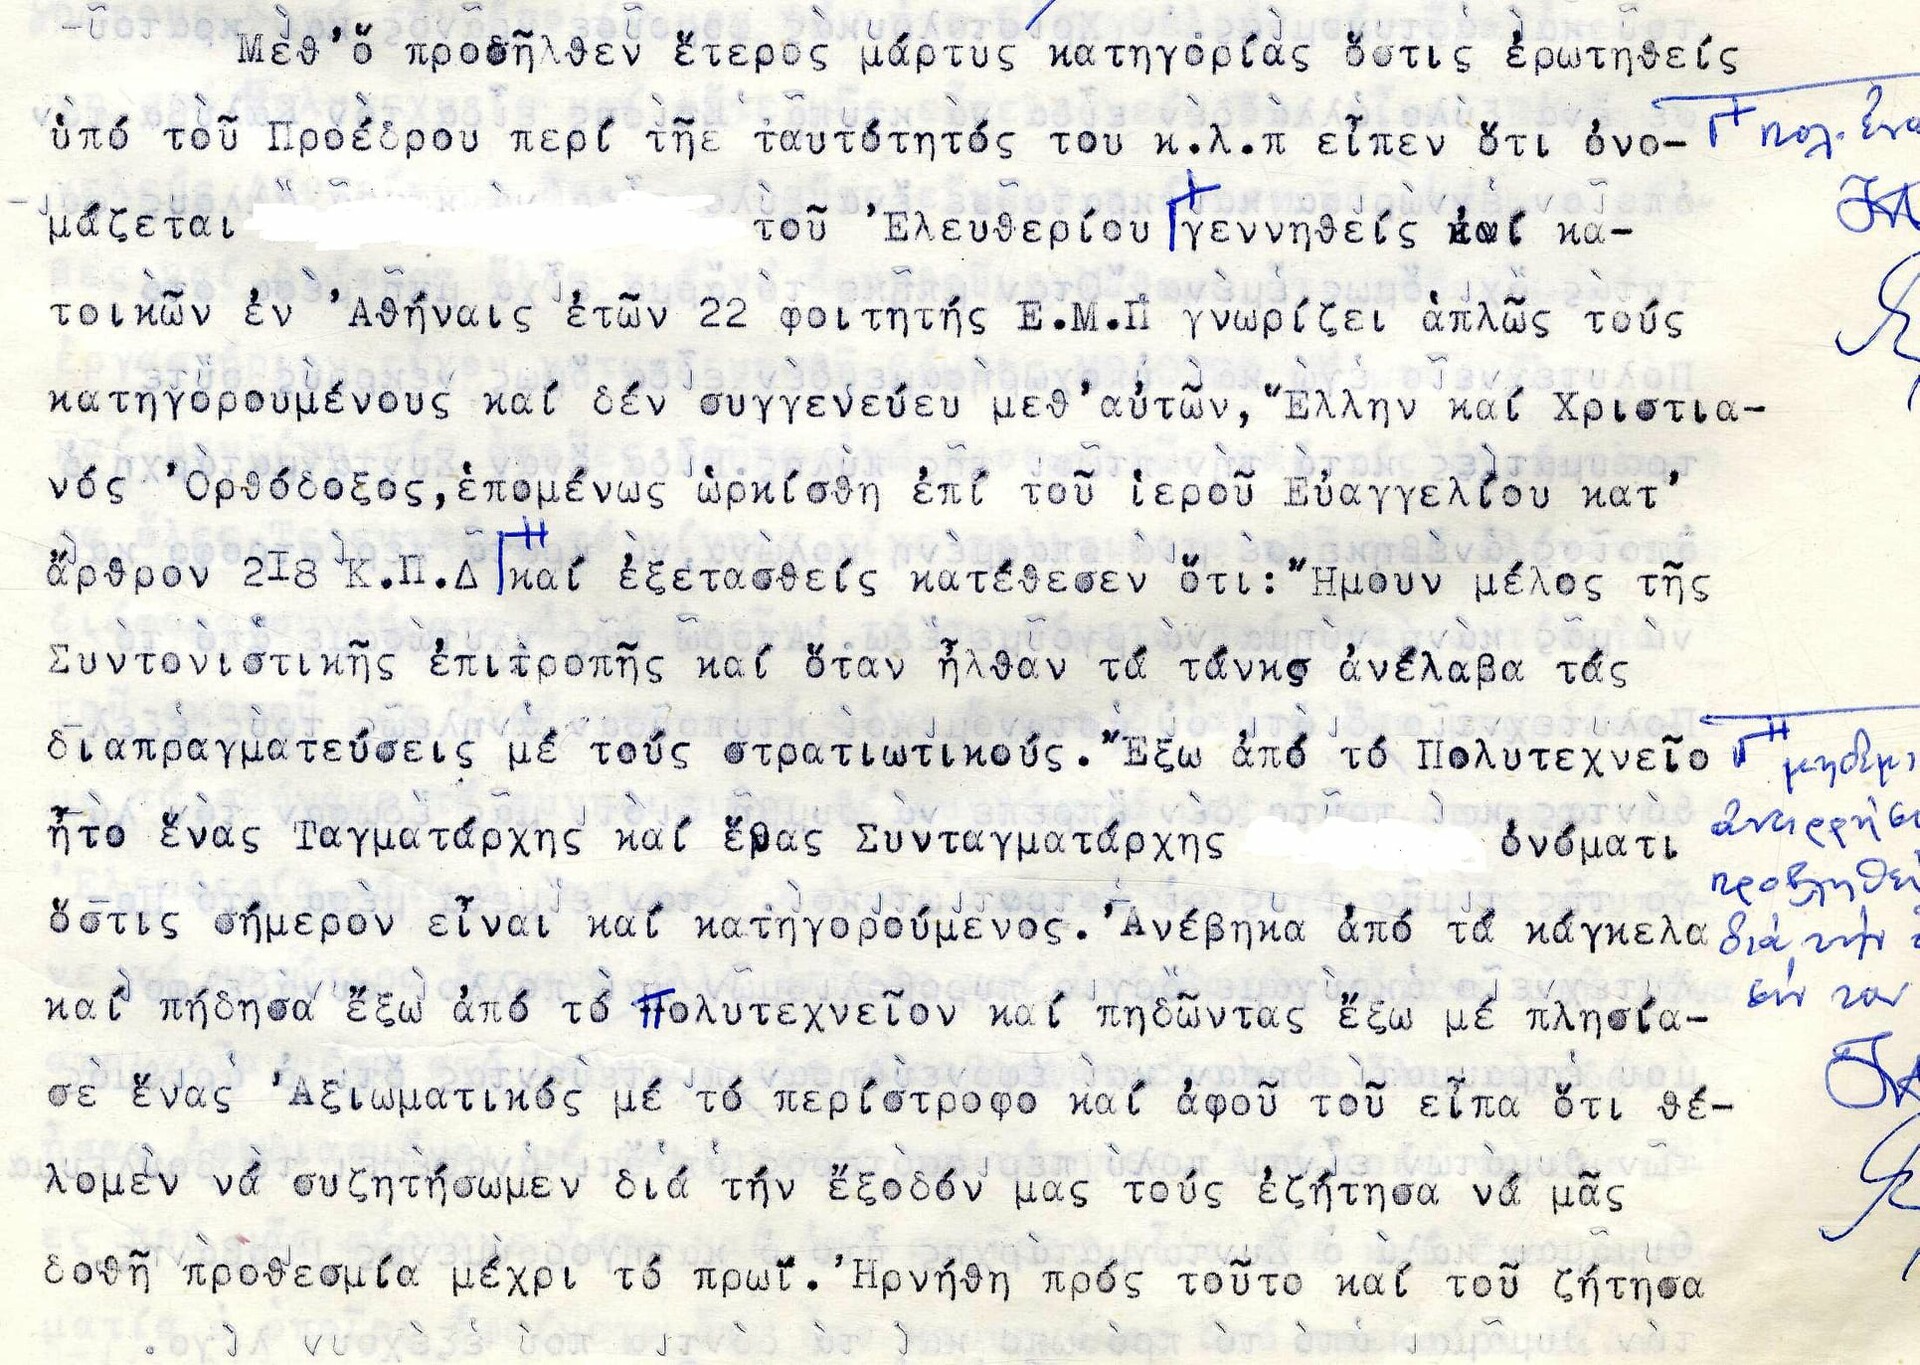 Μεθ'ὅ προσῆλθεν ἕτερος μάρτυς κατηγορίας ὅστις ἐρωτηθείς
ὑπό τοῦ Προέδρου περί τῆε ταυτότητός του κ.λ.π εἶπεν ὅτι ὀνο-
μάζεται τοῦ 'Ελευθερίου γεννηθείς καί κα-
τοικῶν ἐν 'Αθήναις ἐτῶν 22 φοιτητής Ε.Μ.Π γνωρίζει ἁπλῶς τούς
κατηγορουμένους καί δέν συγγενεύευ μεθ'αὐτῶν,"Ελλην καί Χριστια-
νός 'Ορθόδοξος,ἑπομένως ὡρκίσθη ἐπί τοῦ ἱεροῦ Εὐαγγελίου κατ'
ἄρθρον 2Ι8 Κ.Π.Δ καί ἐξετασθείς κατέθεσεν ὅτι:"Ημουν μέλος τῆς
Συντονιστικῆς ἐπιτροπῆς καί ὅταν ἦλθαν τά τάνκς ἀνέλαβα τάς
διαπραγματεύσεις μέ τούς στρατιωτικούς."Εξω ἀπό τό Πολυτεχνεῖο
ἦτο ἕνας Ταγματάρχης καί ἕνας Συνταγματάρχης ὀνόματι
ὅστις σήμερον εἶναι καί κατηγορούμενος.'Ανέβηκα ἀπό τά κάγκελα
καί πήδησα ἔξω ἀπό τό Πολυτεχνεῖον καί πηδῶντας ἔξω μέ πλησία-
σε ἕνας 'Αξιωματικός μέ τό περίστροφο καί ἀφοῦ τοῦ εἶπα ὅτι θέ-
λομεν νά συζητήσωμεν διά τήν ἔξοδόν μας τούς ἐζήτησα νά μᾶς
δοθῆ προθεσμία μέχρι τό πρωΐ.'Ηρνήθη πρός τοῦτο καί τοῦ ζήτησα
πολ.
διά τήν